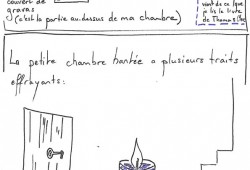 couvert de
gravas
(c'est la partie au-dessus de ma chambre)
vient de ce que
je lis la livre
de Thomas
La petite chambre hantée a plusieurs traits
effrayants: